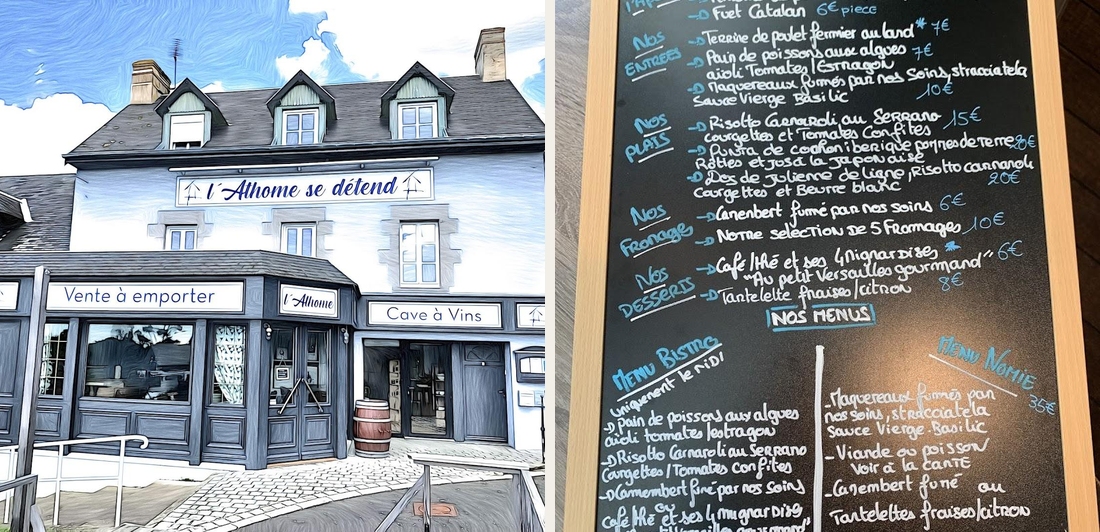 l'Athome se détend
Vente à emporter
l'Athome
Cave à Vins
Fuet Catalan 6€ piece
NOS ENTREES
Terrine de poulet fermier au lard * 7€
Pain de poissons aux algues 7€
aïoli Tomates/Estragon
Maquereaux fumés par nos Soins, stracciatela
Sauce Vierge Basilic 10€
NOS PLATS
Risotto Carnaroli au Serrano 15€
Courgettes et Tomates Confites
de cochon iberique pommes de Terre 20€
Rôties et jus à la japonaise
Dos de Julienne de Ligne, Risotto carnaroli
Courgettes et Beurre blanc 20€
NOS Fromages
Camenbert fumé par nos soins 6€
NOTRE SELECTION DE 5 Fromages 10€
NOS DESSERTS
Café/thé et ses 4 Mignardises * 6€
"Au petit Versailles gourmand"
Tantelette fraises/citron 8€
NOS MENUS
MENU BISTRO
uniquement le MIDI
pain de poissons aux algues
aïoli tomates/estragon
Risotto Carnaroli au SERRANO
Courgettes/Tomates confites
Camembert fumé par nos soins
ou
Café/thé et ses 4 mignardises
MENU NOMIE
35€
Maquereaux fumés par
nos soins, stracciatela
Sauce Vierge Basilic
Viande ou poisson
voir à la CARTE
Camembert fumé ou
Tantelettes fraises/citron